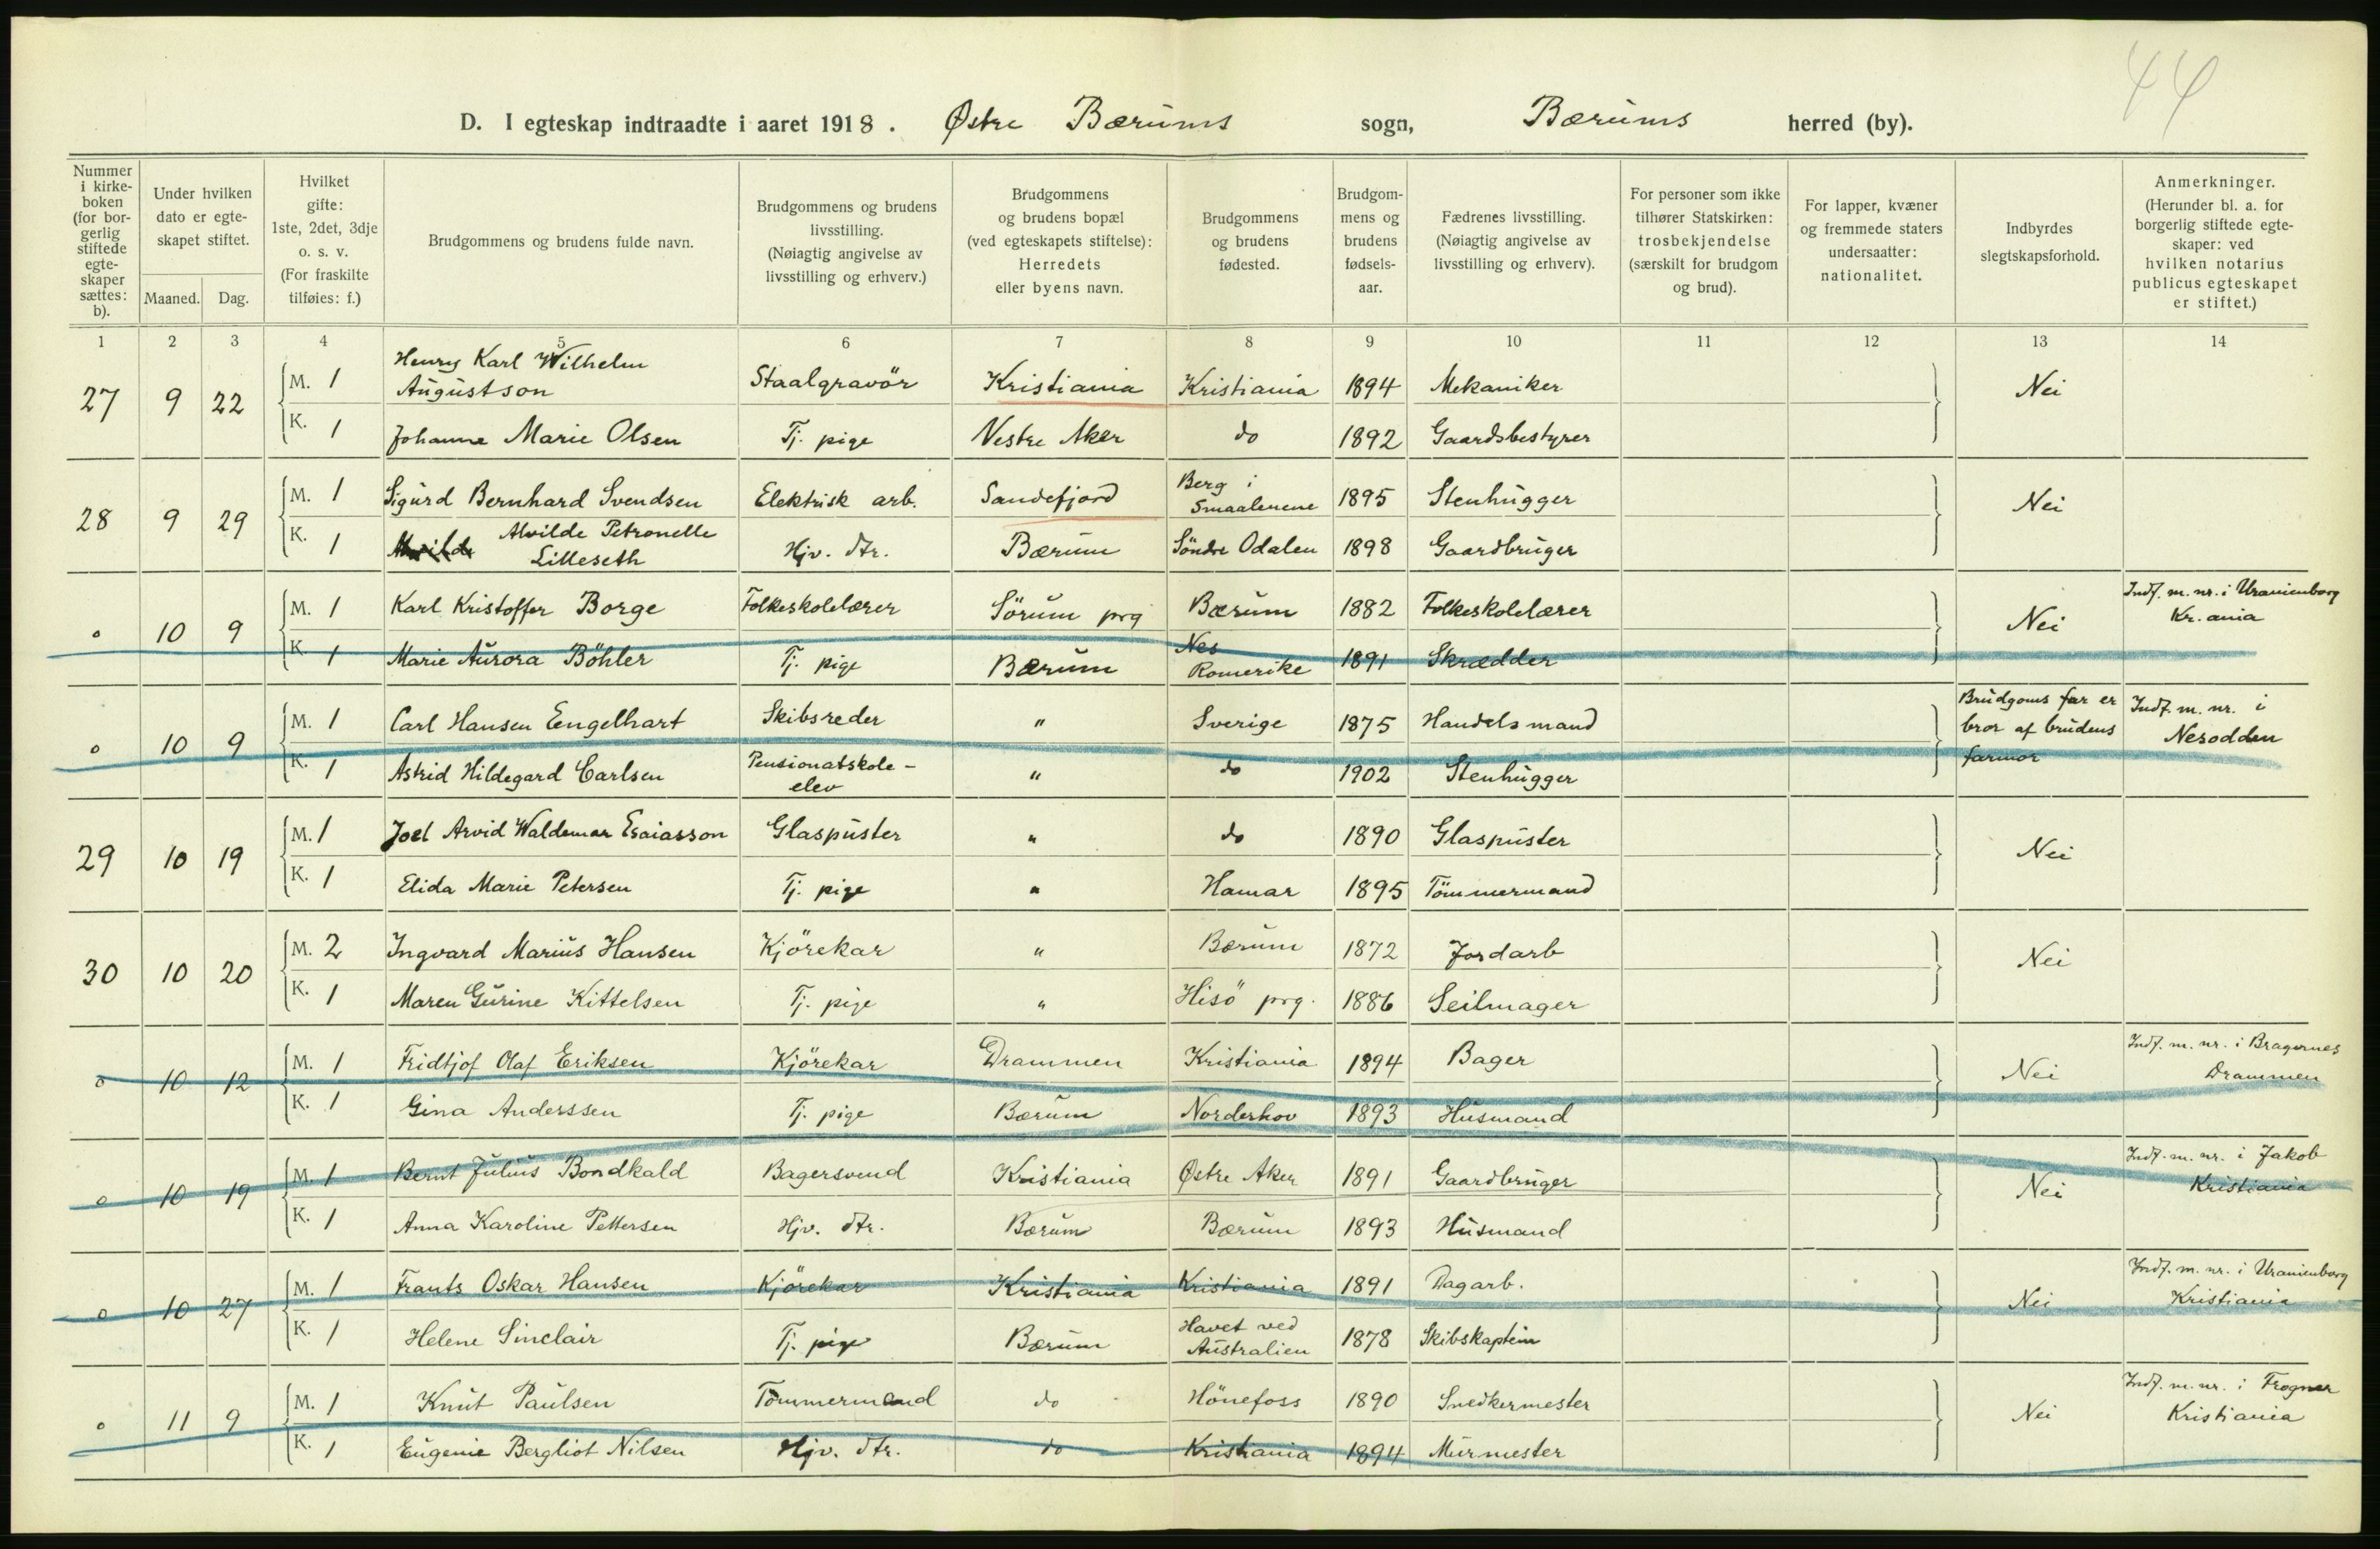 44
D. I egteskap indtraadte i aaret 1918. Østre Bærums sogn, Bærums herred (by).
Nummer i kirke- boken (for bor- gerlig stiftede egte- skaper sættes: b).
Under hvilken dato er egte- skapet stiftet.
Maaned. Dag.
Hvilket gifte: 1ste, 2det, 3dje o. s. v. (For fraskilte tilføies: f.)
Brudgommens og brudens fulde navn.
Brudgommens og brudens livsstilling. (Nøiagtig angivelse av livsstilling og erhverv.)
Brudgommens og brudens bopæl (ved egteskapets stiftelse): Herredets eller byens navn.
Brudgommens og brudens fødested.
Brudgom- mens og brudens fødsels- aar.
Fædrenes livsstilling. (Nøiagtig angivelse av livsstilling og erhverv).
For personer som ikke tilhører Statskirken: trosbekjendelse (særskilt for brudgom og brud).
For lapper, kvæner og fremmede staters undersaatter: nationalitet.
Indbyrdes slegtskapsforhold.
Anmerkninger. (Herunder bl. a. for borgerlig stiftede egte- skaper: ved hvilken notarius publicus egteskapet er stiftet.)
1 2 3 4 5 6 7 8 9 10 11 12 13 14
27 9 22 M. 1 Henry Karl Wilhelm Augustson Staalgravör Kristiania Kristiania 1894 Mekaniker Nei
K. 1 Johanne Marie Olsen Tj. pige Vestre Aker do 1892 Gaardsbestyrer
28 9 29 M. 1 Sigurd Bernhard Svendsen Elektrisk arb. Sandefjord Berg i Smaalenene 1895 Stenhugger Nei
K. 1 Alvilde Petronelle Lilleseth Hjv. dtr. Bærum Söndre Odalen 1898 Gaardbruger
o 10 9 M. 1 Karl Kristoffer Borge Folkeskolelærer Sörum prg Bærum 1882 Folkeskolelærer Nei Indf. m. nr. i Uranienborg Kr.ania
K. 1 Marie Aurora Böhler Tj. pige Bærum Nes Romerike 1891 Skrædder
o 10 9 M. 1 Carl Hansen Eengelhart Skibsreder " Sverige 1875 Handelsmand Brudgoms far er bror af brudens farmor Indf. m. nr. i Nesodden
K. 1 Astrid Hildegard Carlsen Pensionatskole- elev " do 1902 Stenhugger
29 10 19 M. 1 Joel Arvid Waldemar Esaiasson Glaspuster " do 1890 Glaspuster Nei
K. 1 Elida Marie Petersen Tj. pige " Hamar 1895 Tömmermand
30 10 20 M. 2 Ingvard Marius Hansen Kjörekar " Bærum 1872 Jordarb Nei
K. 1 Maren Gurine Kittelsen Tj. pige " Hisö prg. 1886 Seilmager
o 10 12 M. 1 Fridtjof Olaf Eriksen Kjörekar Drammen Kristiania 1894 Bager Nei Indf. m. nr. i Bragernes Drammen
K. 1 Gina Anderssen Tj. pige Bærum Norderhov 1893 Husmand
o 10 19 M. 1 Bernt Julius Bondkald Bagersvend Kristiania Østre Aker 1891 Gaardbruger Nei Indf. m. nr. i Jakob Kristiania
K. 1 Anna Karoline Pettersen Hjv. dtr. Bærum Bærum 1893 Husmand
o 10 27 M. 1 Frants Oskar Hansen Kjörekar Kristiania Kristiania 1891 Dagarb. Nei Indf. m. nr. i Uranienborg Kristiania
K. 1 Helene Sinclair Tj. pige Bærum Havet ved Australien 1878 Skibskaptein
o 11 9 M. 1 Knut Paulsen Tömmermand do Hönefoss 1890 Snedkermester Nei Indf. m. nr. i Frogner Kristiania
K. 1 Eugenie Bergliot Nilsen Hjv. dtr. do Kristiania 1894 Murmester